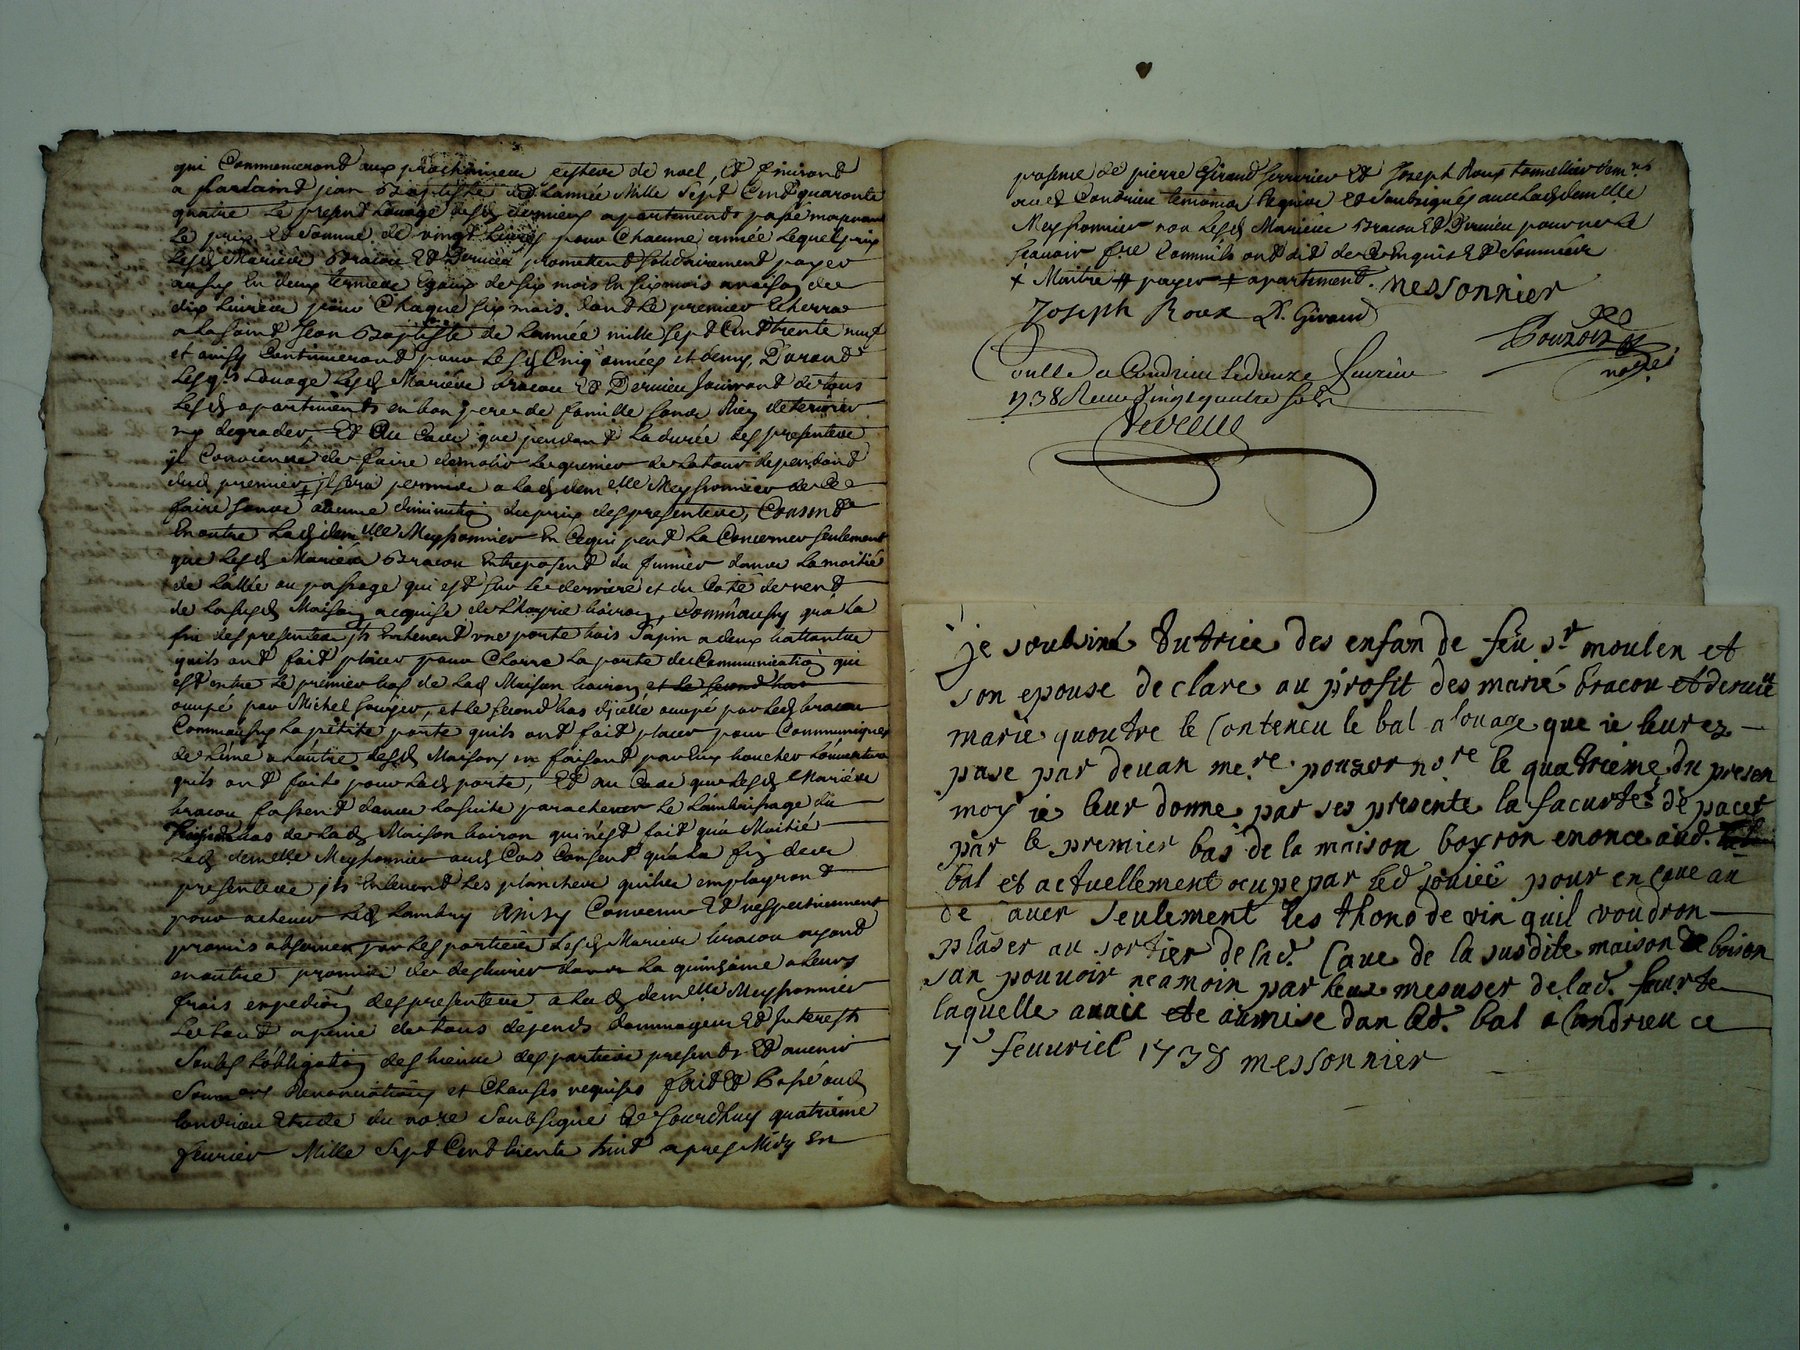 qui Commenceront aux prochaines festes de noel, Et finiront
a la saint jean Baptiste de Lannée Mille Sept Cent quarante
quatre le present Louage desd. derniers apartements passé moyennant
Le prix Et Somme de vingt Livres pour Chacune année Lequel prix
Lesd. Mariés Bracou Et Dervieu promettent solidairement payer
aussy En deux termes Egaux de six mois En six mois a raison de
dix Livres pour Chaque six mois, dont le premier Echerra
a la saint Jean Baptiste de Lannée mille sept Cent trente neuf
et ainsy Continueront pour les Cinq années et demy, Durant
Lesq.ls Louage Lesd. Mariés Bracou Et Dervieu Jouiront de tous
Lesd. apartements en bon pere de famille sans Rien deteriorer
ny degrader, Et Au Cas que pendant La durée des presentes
il Convienne de faire demolir Le grenier de la tour dependant
dud. premier, il sera permis a lad. dem.elle Meyssonnier de Ce
faire sans aucune diminution du prix des presentes, Consent
En outre Lad. dem.elle Meyssonnier En Cequi peut La Concerner seulement
que Lesd. Mariés Bracou Entreposent du fumier dans La moitié
de Lallée ou passage qui est sur le derriere et du Coté de vent
de Lasusd. Maison acquise de boiron, Comm'aussy qu'a La
fin des presentes ils Enlevent une porte bois Sapin a deux battantes
quils ont fait placer pour Clorre la porte de Communication qui
est entre Le premier bas de Lad. Maison boiron et Le second bas
occupé par Michel et le second bas d'icelle occupé par Led. bracou
Commaussy La petite porte quils ont fait placer pour Communiquer
de L'une a Lautre desd. Maisons en faisant par Eux boucher Louverture
quils ont faite pour Lad. porte, Et Au Cas que Lesd. Mariés
bracou fassent dans Lasuite parachever Le Lambrissage du
bas de Lad. Maison boiron qui n'est fait qu'a Moitié
Lad. dem.elle Meyssonnier aud. Cas Consent qu'a la fin des
presentes ils Enlevent Les planches quilsy employront
pour achever Led. Lambry Ainsy Convenu Et respectivement
promis observer par Les parties Lesd. Mariés bracou ayant
en outre promis de delivrer dans La quinzaine a Leurs
frais expedition des presentes a lad. dem.elle Meyssonnier
Le tout a peine de tous depends dommages Et Interests
Soubs L'obligation des biens des parties presents Et avenir
Soum.ons Renonciations et Clauses requises fait Et Passé aud.
Condrieu Etude du no.re Soubsigné Ce Jourdhuy quatrieme
fevrier Mille Sept Cent trente huit apres Midy En
presence de pierre Giraud Serrurier Et Joseph Roux tonnellier dem.ts
aud. Condrieu temoins Requis Et Soubsignés avec Lad. dem.elle
Meyssonnier non Lesd. Mariés Bracou Et Dervieu pour ne le
sçavoir f.re Comm'ils ont dit de Ce Enquis Et Sommés
+ Maitre # payer ‡ apartement. messonnier
Joseph Roux P. Giraud
Pouzols
no.re
Con.lle a Condrieu Le douze fevrier
1738 Receu Vingt quatre sols
je soubsiné tutrice des enfan de feu s.r moulen et
son epouse declare au profit des marié bracou et dervieu
marie quoutre le Contencu le bal a louage que ie leur ez
pase par devan me.re pouzor no.re le quatrieme du presen
moy ie leur donne par ses presente la facurtes de pacer
par le premier bas de la maison boyron enonce aud.
bal et actuellement ocupe par led joniee pour en cave au
de aver seulement les thono de vin quil voudron
plaser au sortier de lad. Cave de la susdite maison de boison
san pouvoir neamoin par leus mesuser de lad. faurte
laquelle avait ete aumise dan led. bal a Condrieu ce
7 feuuriel 1738 messonnier